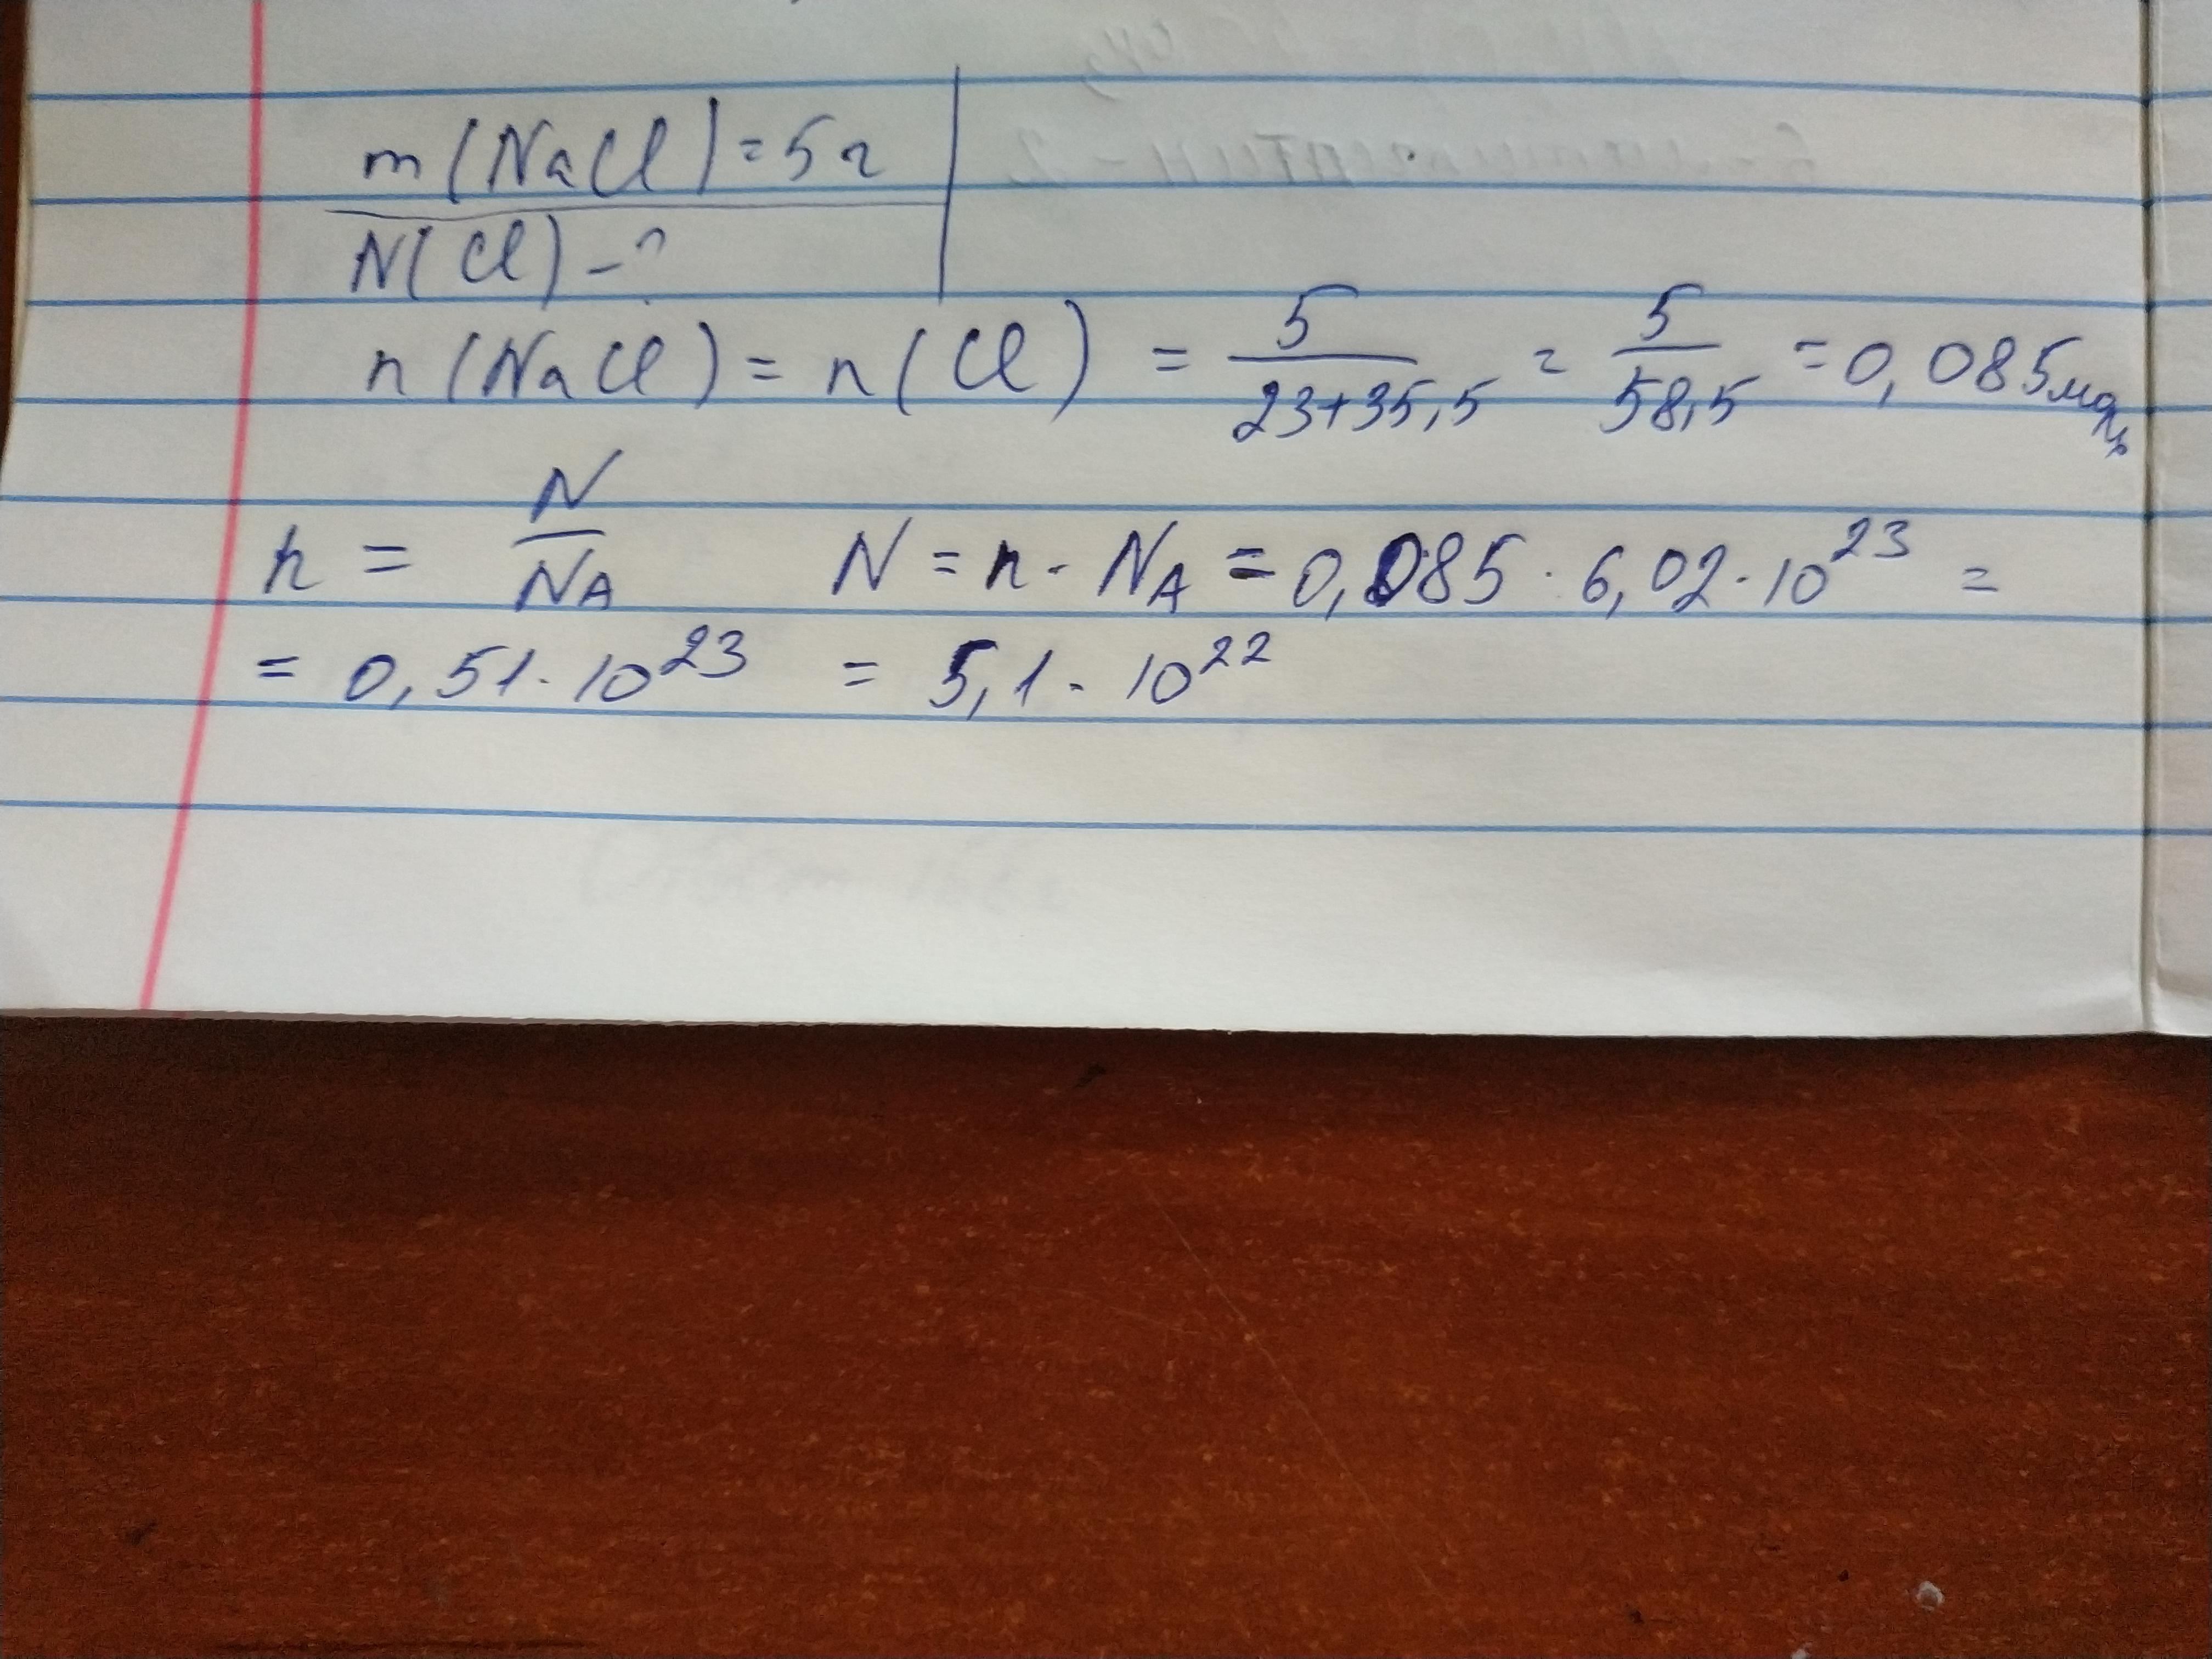 m(NaCl)=5г
N(Cl)-?
n(NaCl)=n(Cl) = 5/(23+35,5) = 5/58,5 = 0,085 моль
n = N/NA N = n · NA = 0,085 · 6,02 · 10²³ =
= 0,51 · 10²³ = 5,1 · 10²²